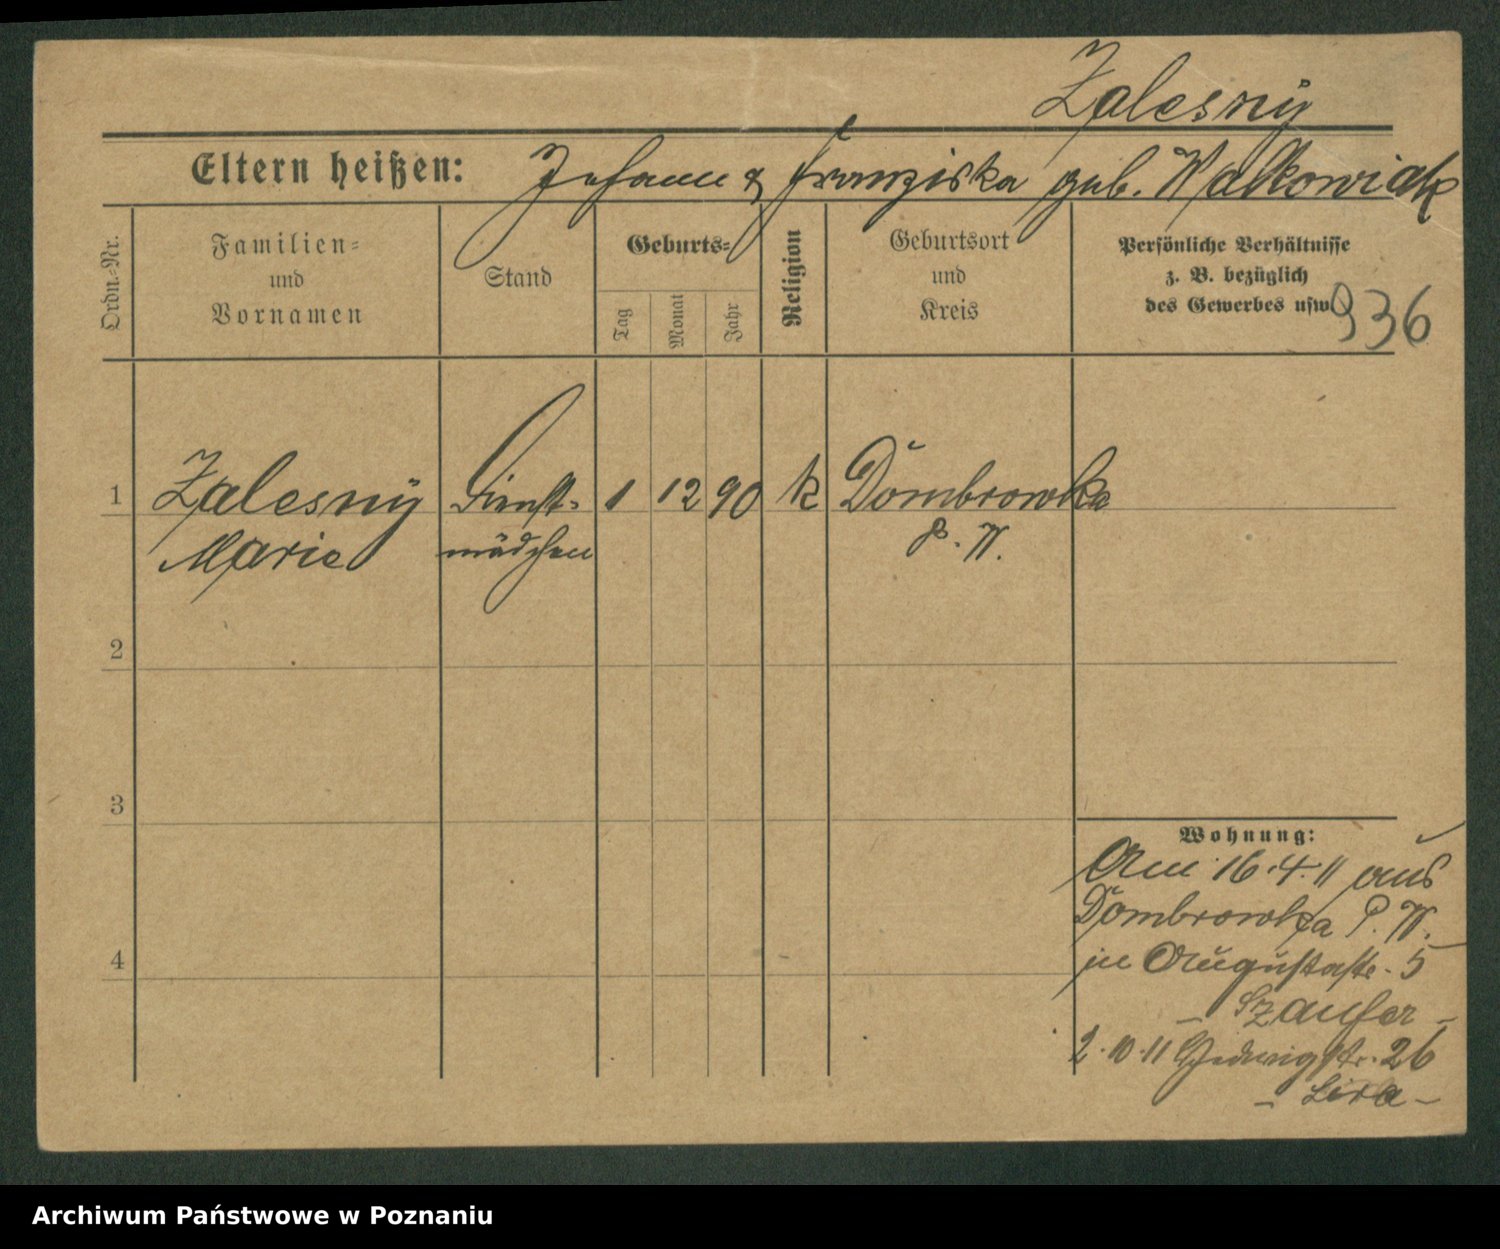 Zalesny
Eltern heißen: Johann & Franziska geb. Walkowiak
Ordn.-Nr.
Familien-
und
Vornamen
Stand
Geburts-
Tag
Monat
Jahr
Religion
Geburtsort
und
Kreis
Persönliche Verhältnisse
z. B. bezüglich
des Gewerbes usw.
936
1 Zalesny Dienst- 1 12 90 k Dombrowka
Marie mädchen P. W.
2
3
4
Wohnung:
Am 16.4.11 aus
Dombrowka P. W.
in Augustastr. 5
2.10.11 Hedwigstr. 26
Archiwum Państwowe w Poznaniu